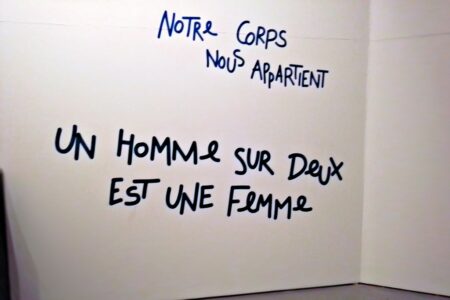 NOTRe CORPS
NOUS APPARTIENT
UN HOMMe SUR DeUX
EST UNE FeMMe